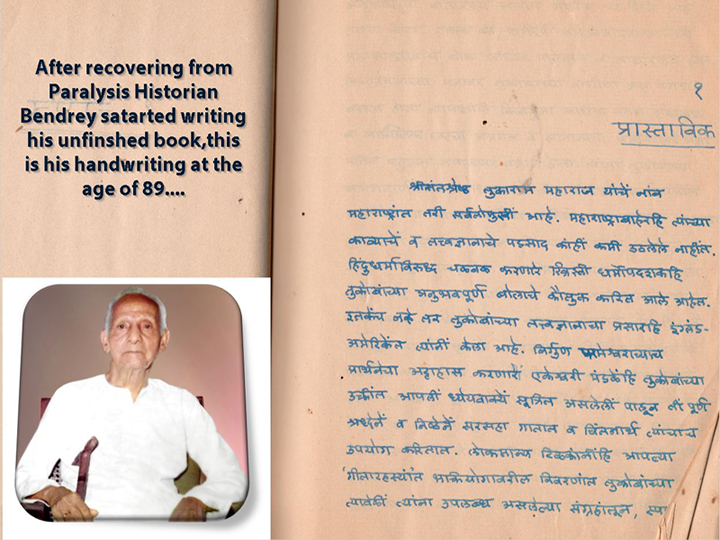 After recovering from
Paralysis Historian
Bendrey satarted writing
his unfinshed book,this
is his handwriting at the
age of 89....
१
प्रास्ताविक
श्रीसंतश्रेष्ठ तुकाराम महाराज यांचें नांव
महाराष्ट्रांत तरी सर्वतोमुखीं आहे. महाराष्ट्राबाहेरहि त्यांच्या
काव्याचें व तत्त्वज्ञानाचे पडसाद कांहीं कमी उठलेले नाहींत.
हिंदुधर्माविरुद्ध चळवळ करणारे ख्रिस्ती धर्मोपदेशकहि
तुकोबांच्या अनुभवपूर्ण बोलाचे कौतुक करित आले आहेत.
इतकेंच नव्हे तर तुकोबांच्या तत्त्वज्ञानाचा प्रसारहि इंग्लंड-
अमेरिकेंत त्यांनीं केला आहे. निर्गुण परमेश्वराच्याच
प्रार्थनेचा अट्टाहास करणारीं एकेश्वरी मंडळेंहि तुकोबांच्या
उक्तींत आपलीं ध्येयवाक्यें सूत्रित असलेलीं पाहून तीं पूर्ण
श्रध्देनें व निष्ठेनें सरसहा गातात व चिंतनार्थ त्यांचाच
उपयोग करितात. लोकमान्य टिळकांनींहि आपल्या
'गीतारहस्यांत' भक्तियोगावरील विवरणांत तुकोबांच्या
त्यावेळीं त्यांना उपलब्ध असलेल्या संग्रहांतून,